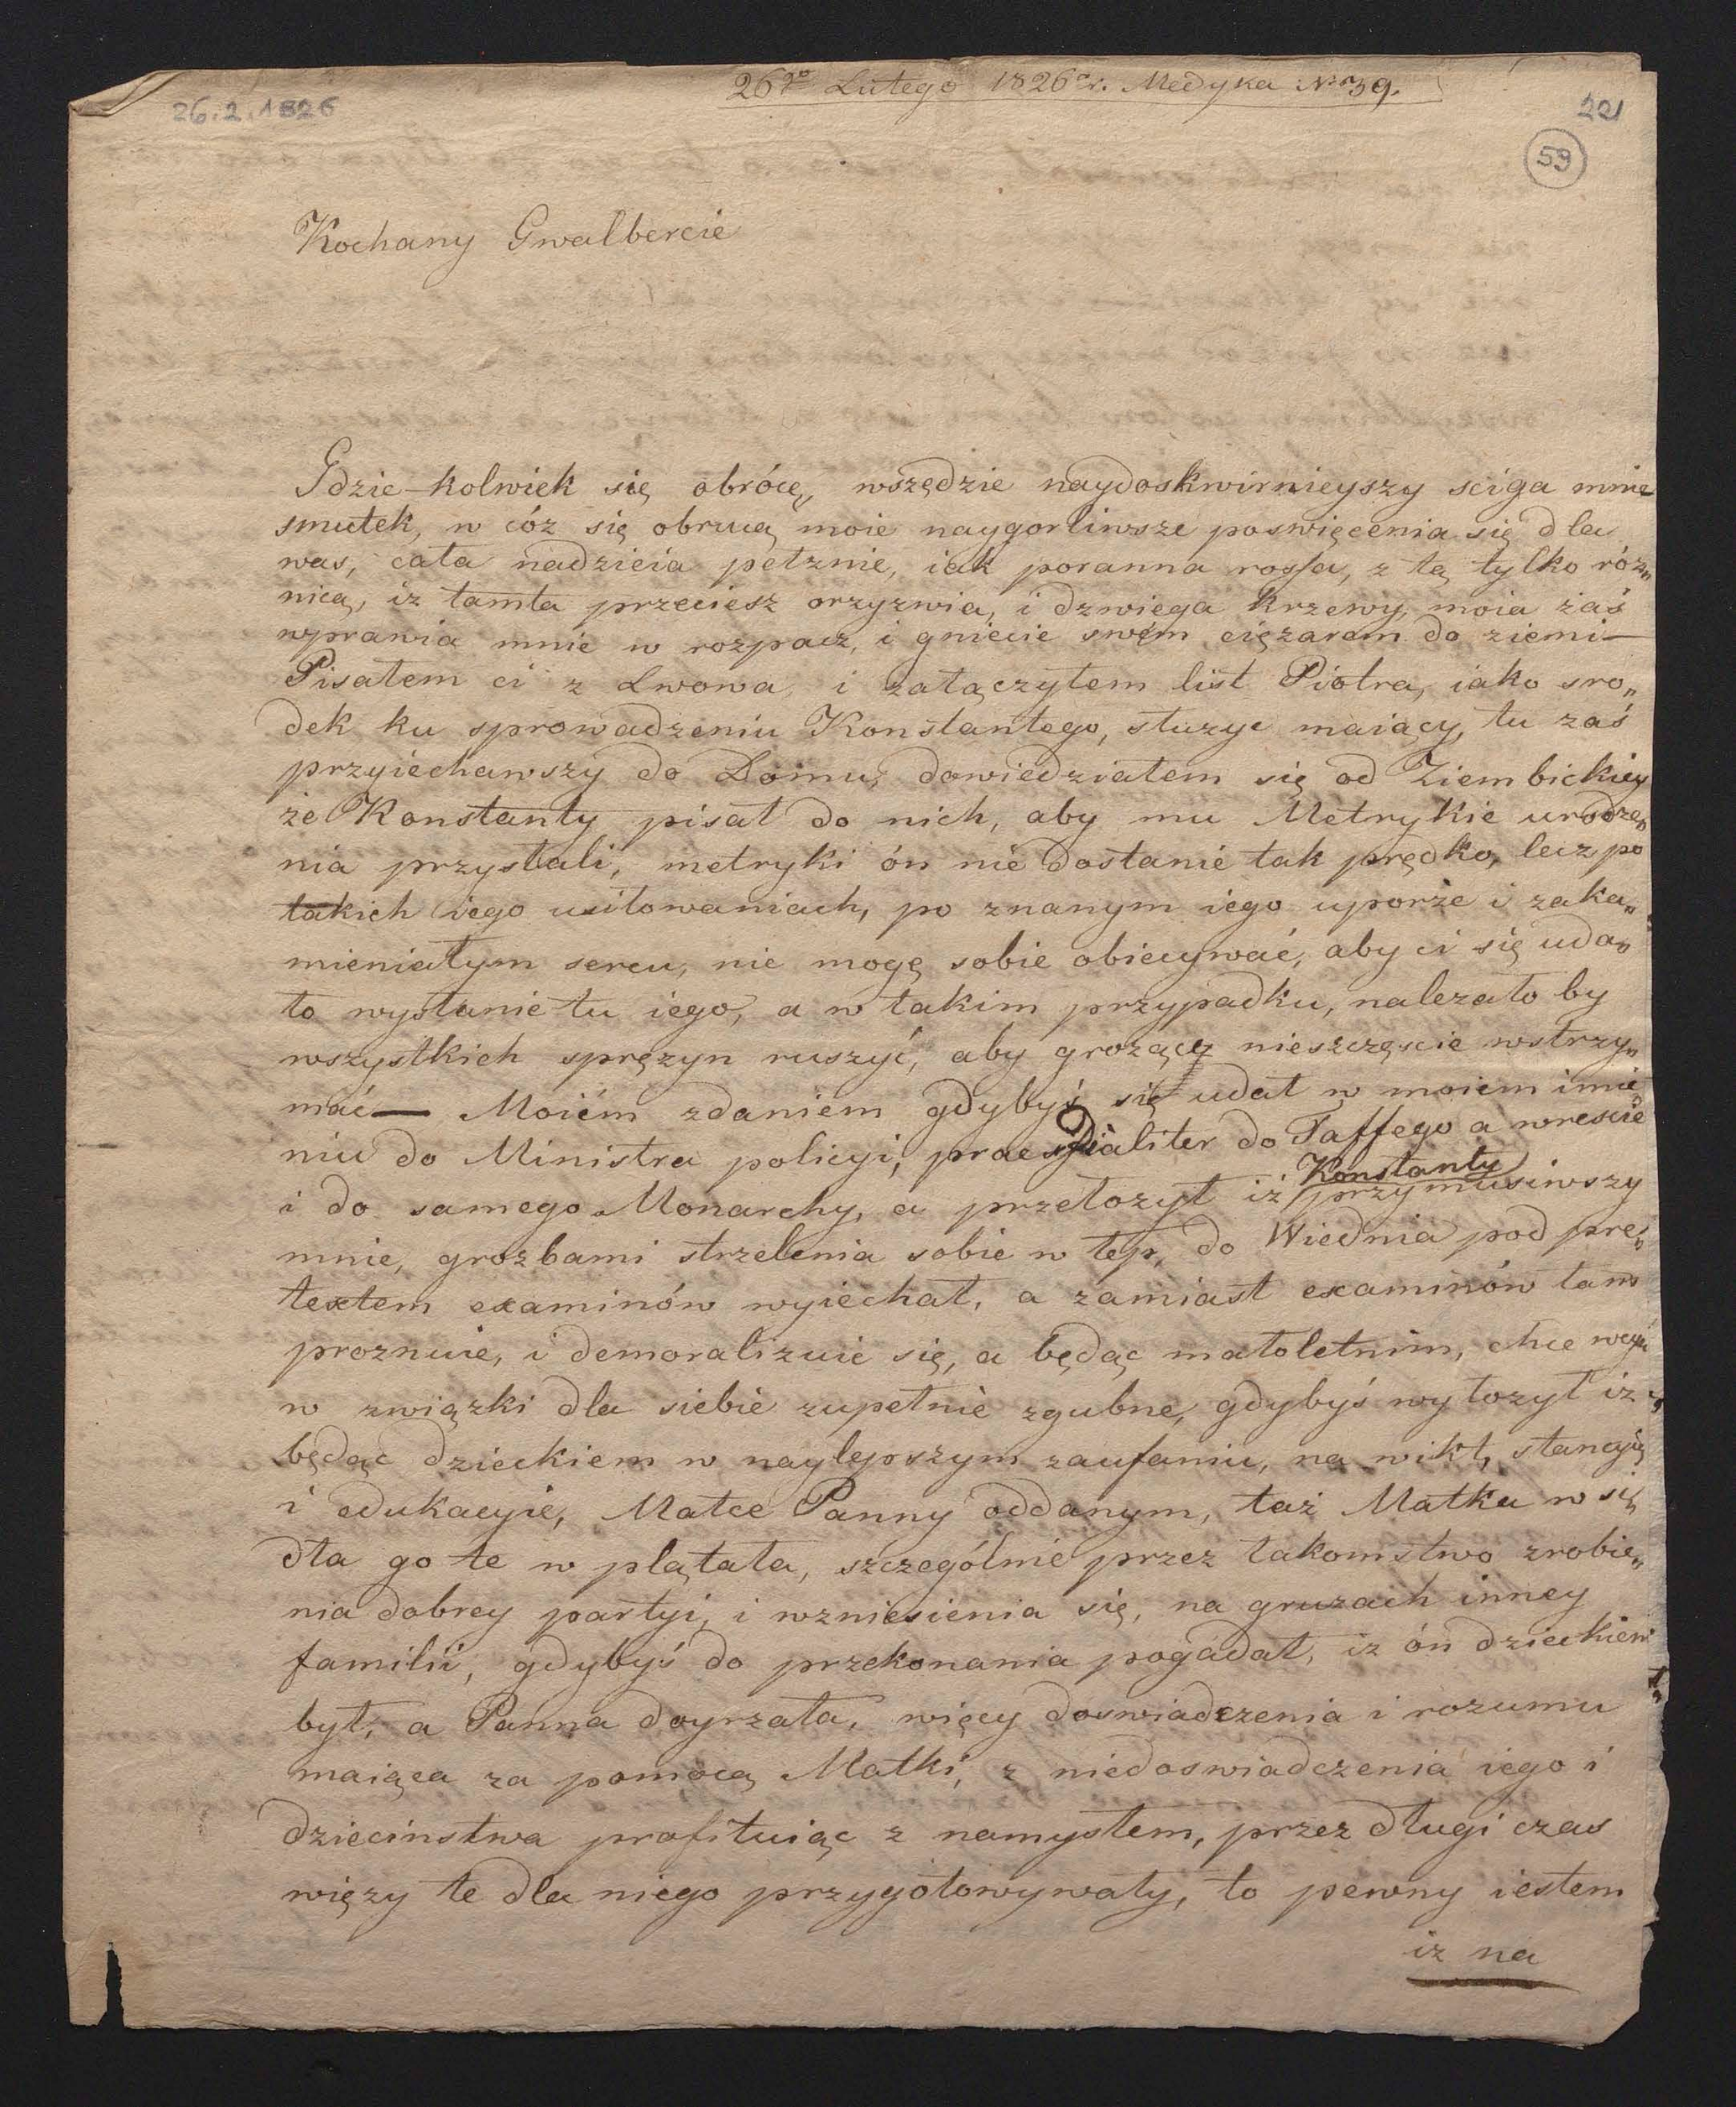 26go Lutego 1826r. Medyka Nro 39.
26.2.1826
221
59
Kochany Gwalbercie
Gdzie-kolwiek się obrócę, wszędzie naydoskwirnieyszy sciga mnie
smutek, w cóz się obrucą moie naygorliwsze poswięcenia się dla
was, cała nadzieia pełznie, iak poranna rossa, z tą tylko róż„
nicą, iz tamta przeciesz orzyzwia, i dzwiega krzewy, moia zaś
wprawia mnie w rozpacz, i gniecie swém ciężarem do ziemi —
Pisałem ci z Lwowa i załączyłem list Piotra, iako sro„
dek ku sprowadzeniu Konstantego, służyc maiący, tu zaś
przyiechawszy do Domu, dowiedziałem się od Ziembickiey
że Konstanty pisał do nich, aby mu Metrykie urodze„
nia przysłali, metryki ón nie dostanie tak prędko, lecz po
takich iego usiłowaniach, po znanym iego uporze i zaka„
mieniałym sercu, nie mogę sobie obiecywać, aby ci się uda„
ło wysłanie tu iego, a w takim przypadku, nalezało by
wszystkich sprężyn ruszyć, aby grożące nieszczęscie wstrzy„
mać — Moiém zdaniem gdybyś się udał w moiem imie
niu do Ministra policyi, praesidialiter do Taffego a wrescie
i do samego Monarchy, a przełozył iż Konstanty przymusiwszy
mnie, grozbami strzelenia sobie w łep, do Wiednia pod pre„
textem examinów wyiechał, a zamiast examinów tam
proznuie, i demoralizuie się, a będąc małoletnim, chce weyść
w związki dla siebie zupełnie zgubne, gdybyś wyłozył iz
będąc dzieckiem w naylepszym zaufaniu, na wikt, stancyią
i edukacyie, Matce Panny oddanym, taż Matka w si„
dła go te w plątała, szczególnie przez łakomstwo zrobie„
nia dobrey partyi, i wzniesienia się, na gruzach inney
familii, gdybyś do przekonania pogadał, iz ón dzieckiem
był, a Panna doyrzała, więcy doswiadczenia i rozumu
maiąca za pomocą Matki, z niedoswiadczenia iego i
dziecinstwa profituiąc z namysłem, przez długi czas
więzy te dla niego przygotowywały, to pewny iestem
iz na